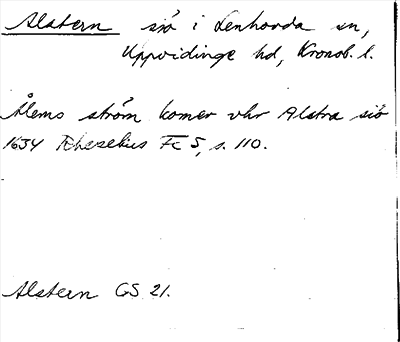 Alstern sjö i Lenhovda sn,
Uppvidinge hd, Kronob. l.
Ålems ström komer vhr Alstra siö
1634 Rhezelius Fc 5, s. 110.
Alstern GS 21.